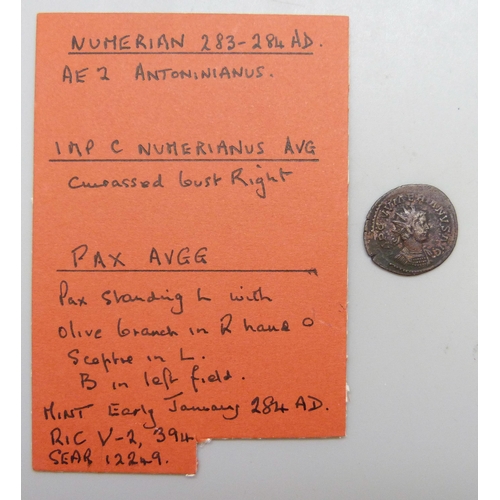 NUMERIAN 283-284 AD.
AE 2 ANTONINIANUS.
IMP C NUMERIANUS AVG
Cuirassed bust Right
PAX AVGG
Pax standing L with
olive branch in R hand
Sceptre in L.
B in left field.
MINT Early January 284 AD.
RIC V-2, 394
SEAR 12249.